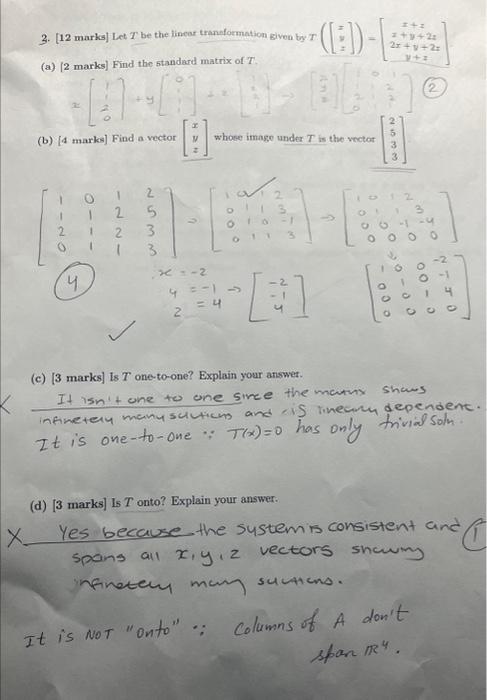 3. [12 marks] Let T be the linear transformation given by T([x y z]) = [x + z
x + y + 2z
2x + y + 2z
y + z]
(a) [2 marks] Find the standard matrix of T.
2
(b) [4 marks] Find a vector [x y z] whose image under T is the vector [2 5 3 3]
1 0 1 2
1 1 2 5
2 1 2 3
0 1 1 3
→
0 1 1 3
→
1 0 1 2
0 1 1 3
0 0 -1 -4
0 0 0 0
x = -2
y = -1 → [-2 -1 4]
z = 4
1 0 0 -2
0 1 0 -1
0 0 1 4
0 0 0 0
4
(c) [3 marks] Is T one-to-one? Explain your answer.
It isn't one to one since the matrix shows
infinetely many solutions and is linearly dependent.
It is one-to-one ∵ T(x)=0 has only trivial Soln.
(d) [3 marks] Is T onto? Explain your answer.
X Yes because the system is consistent and 1
spans all x, y, z vectors showing
infinetely many solutions.
It is NOT "onto" ∵ Columns of A don't
span ℝ⁴.